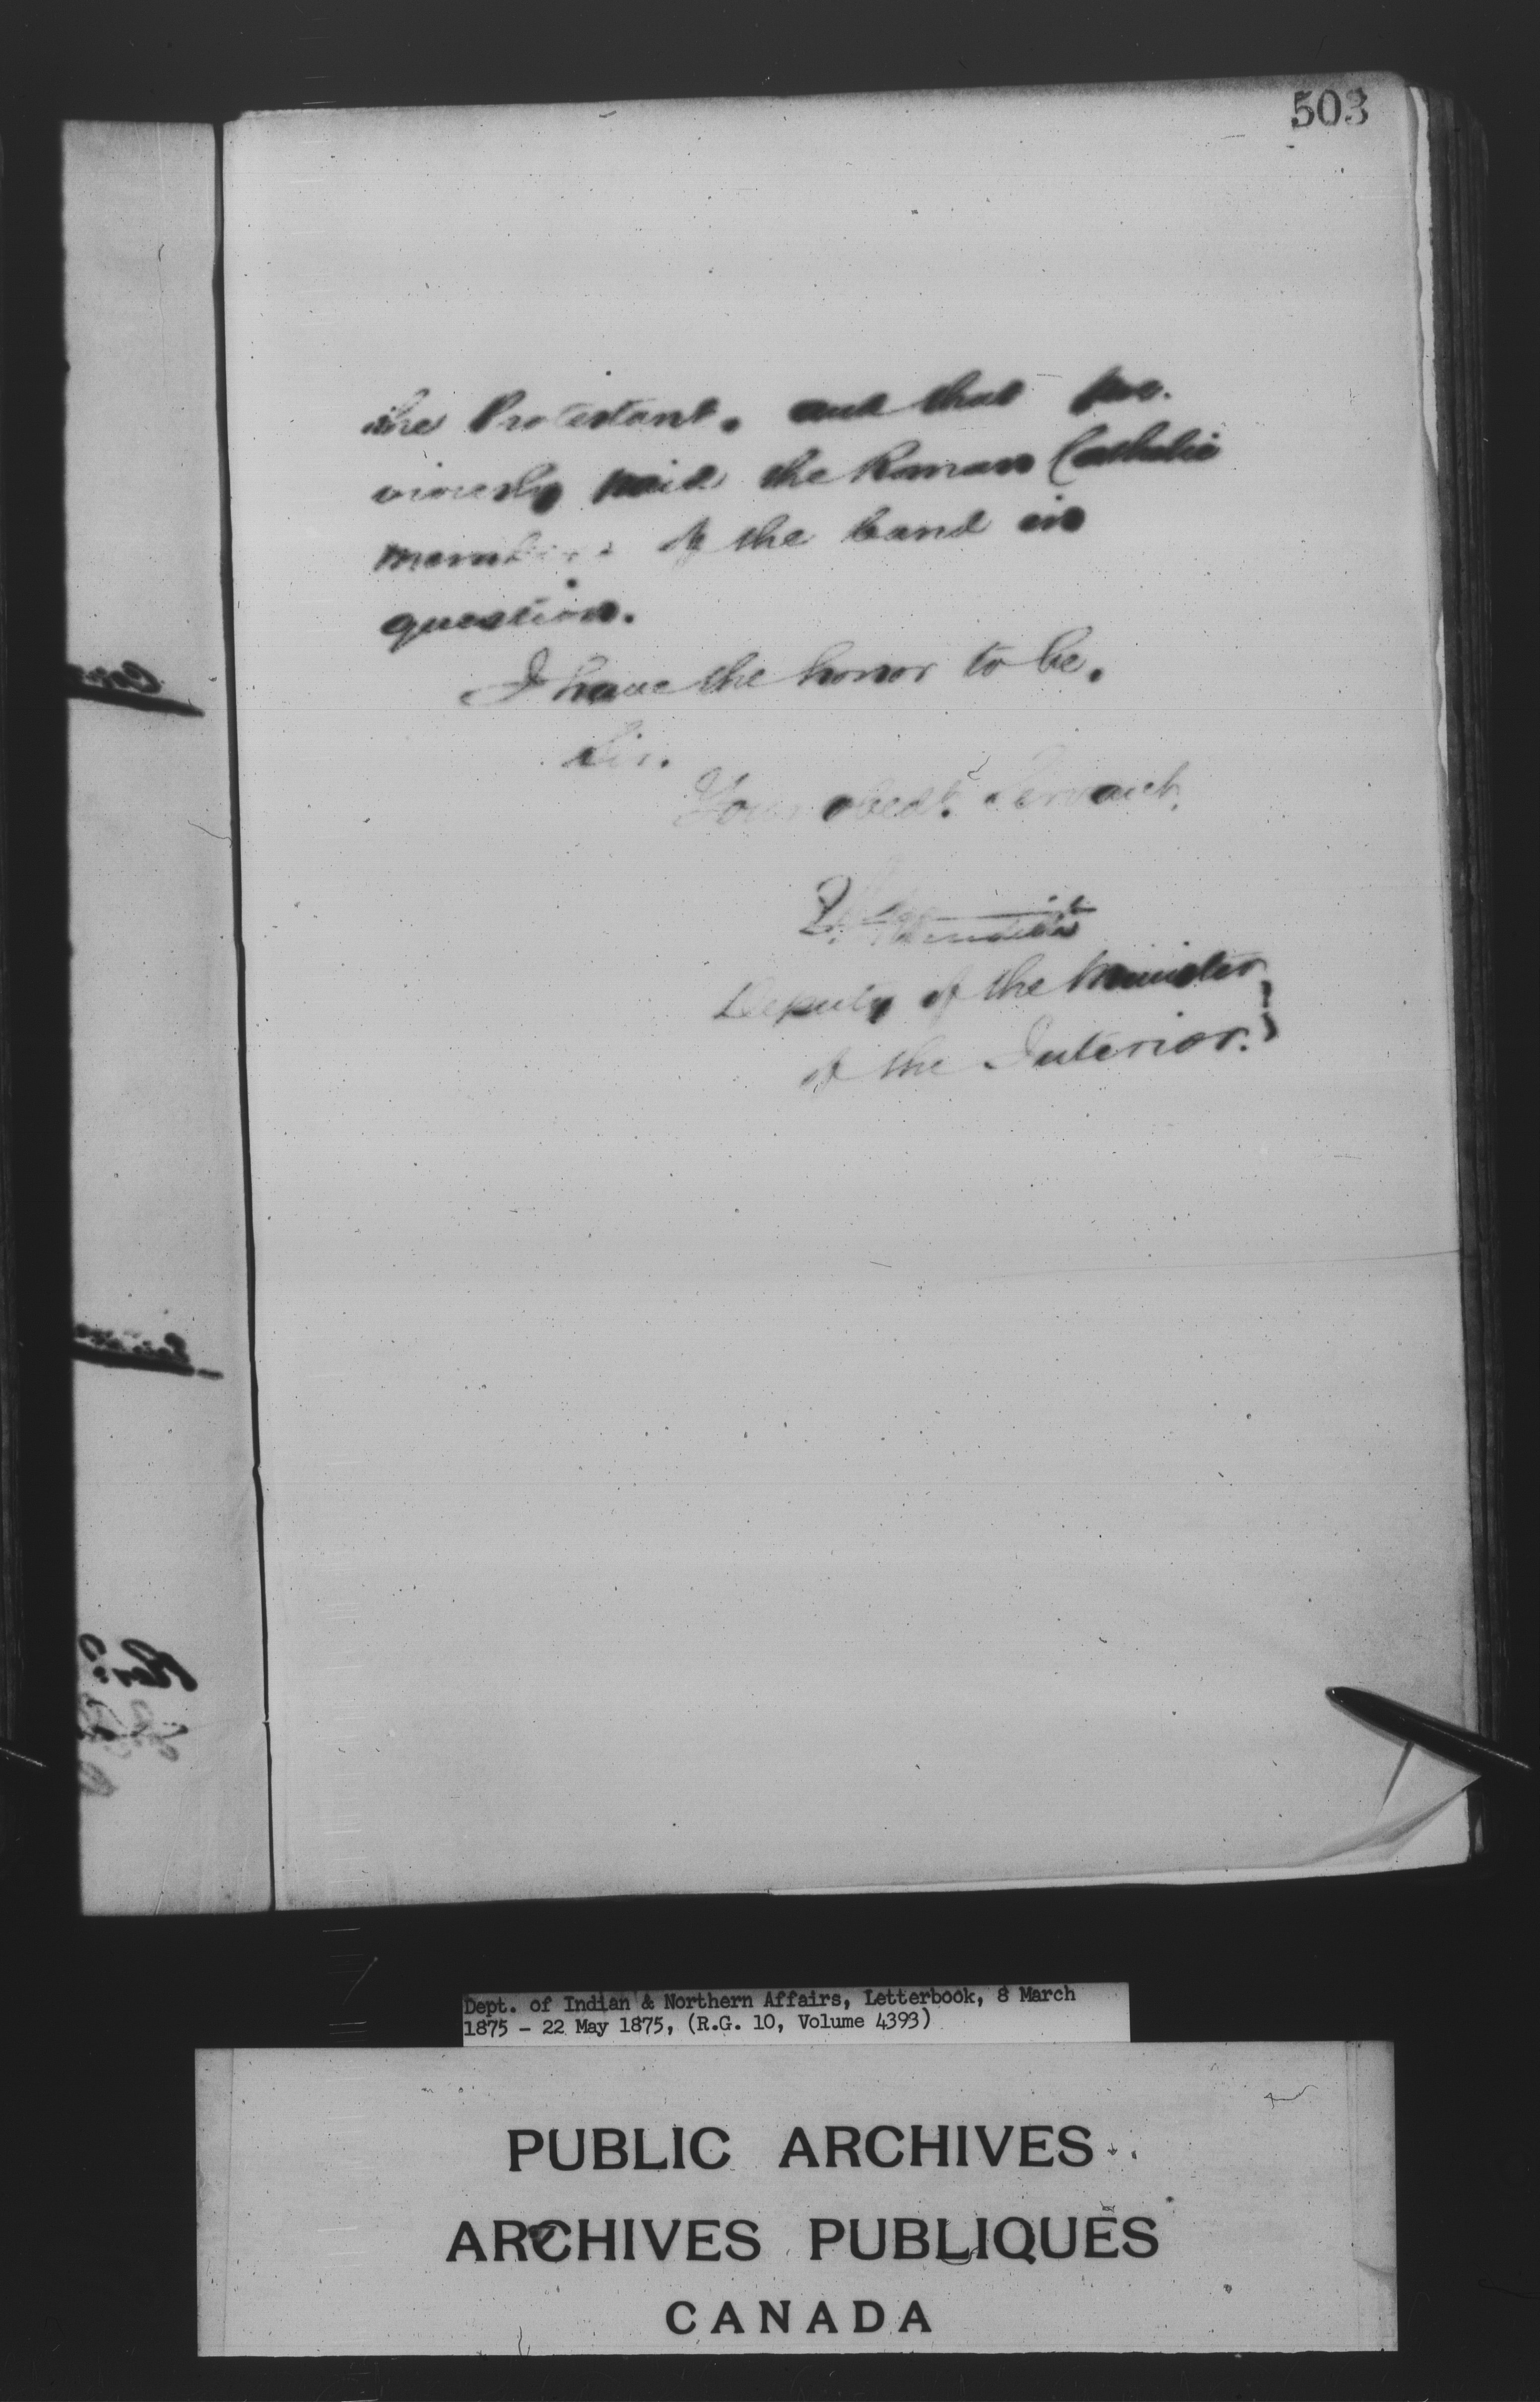 503
the Protestant. and that pre-
viously paid the Roman Catholic
members of the band in
question.
I have the honor to be.
Sir.
Your obedt. Servant,
Deputy of the Minister
of the Interior.
Dept. of Indian & Northern Affairs, Letterbook, 8 March
1875 - 22 May 1875, (R.G. 10, Volume 4393)
PUBLIC ARCHIVES
ARCHIVES PUBLIQUES
CANADA